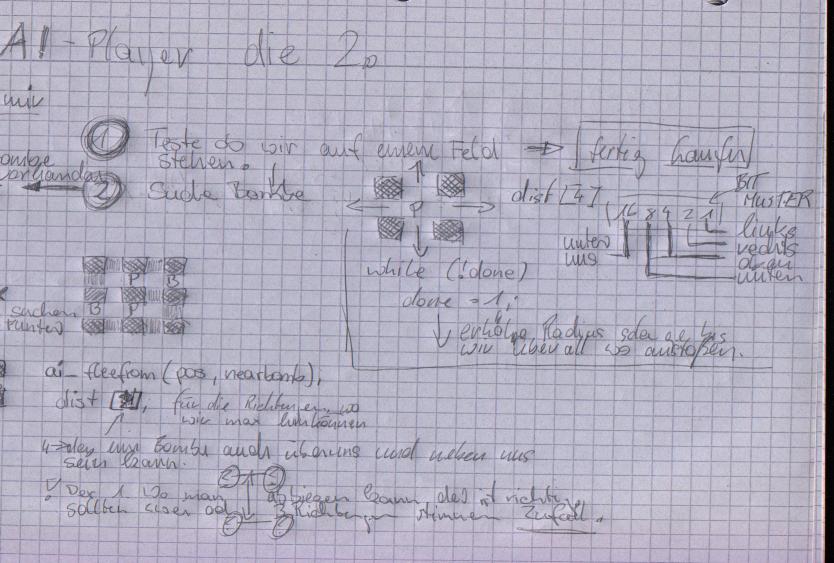 AI-Player die 2.
mir
1 Teste ob wir auf einem Feld → fertig laufen
stehen.
ombe
vorhanden
2 Suche Bombe
dist [4]
BIT
MUSTER
16 8 4 2 1
links
rechts
oben
unten
unter
uns
P
while (!done)
done = 1;
erhöhe Radius solange bis
wir überall wo anstoßen.
P B
B P
suchen
runter
ai_fleefrom (pos, nearbomb),
dist [4], für die Richtungen, wo
wir max hinkönnen
Bombe auch über uns und neben uns
sein kann.
Der 1. wo man abbiegen kann, des ist richti
sollten 3 Richtungen stimmen Zufall.